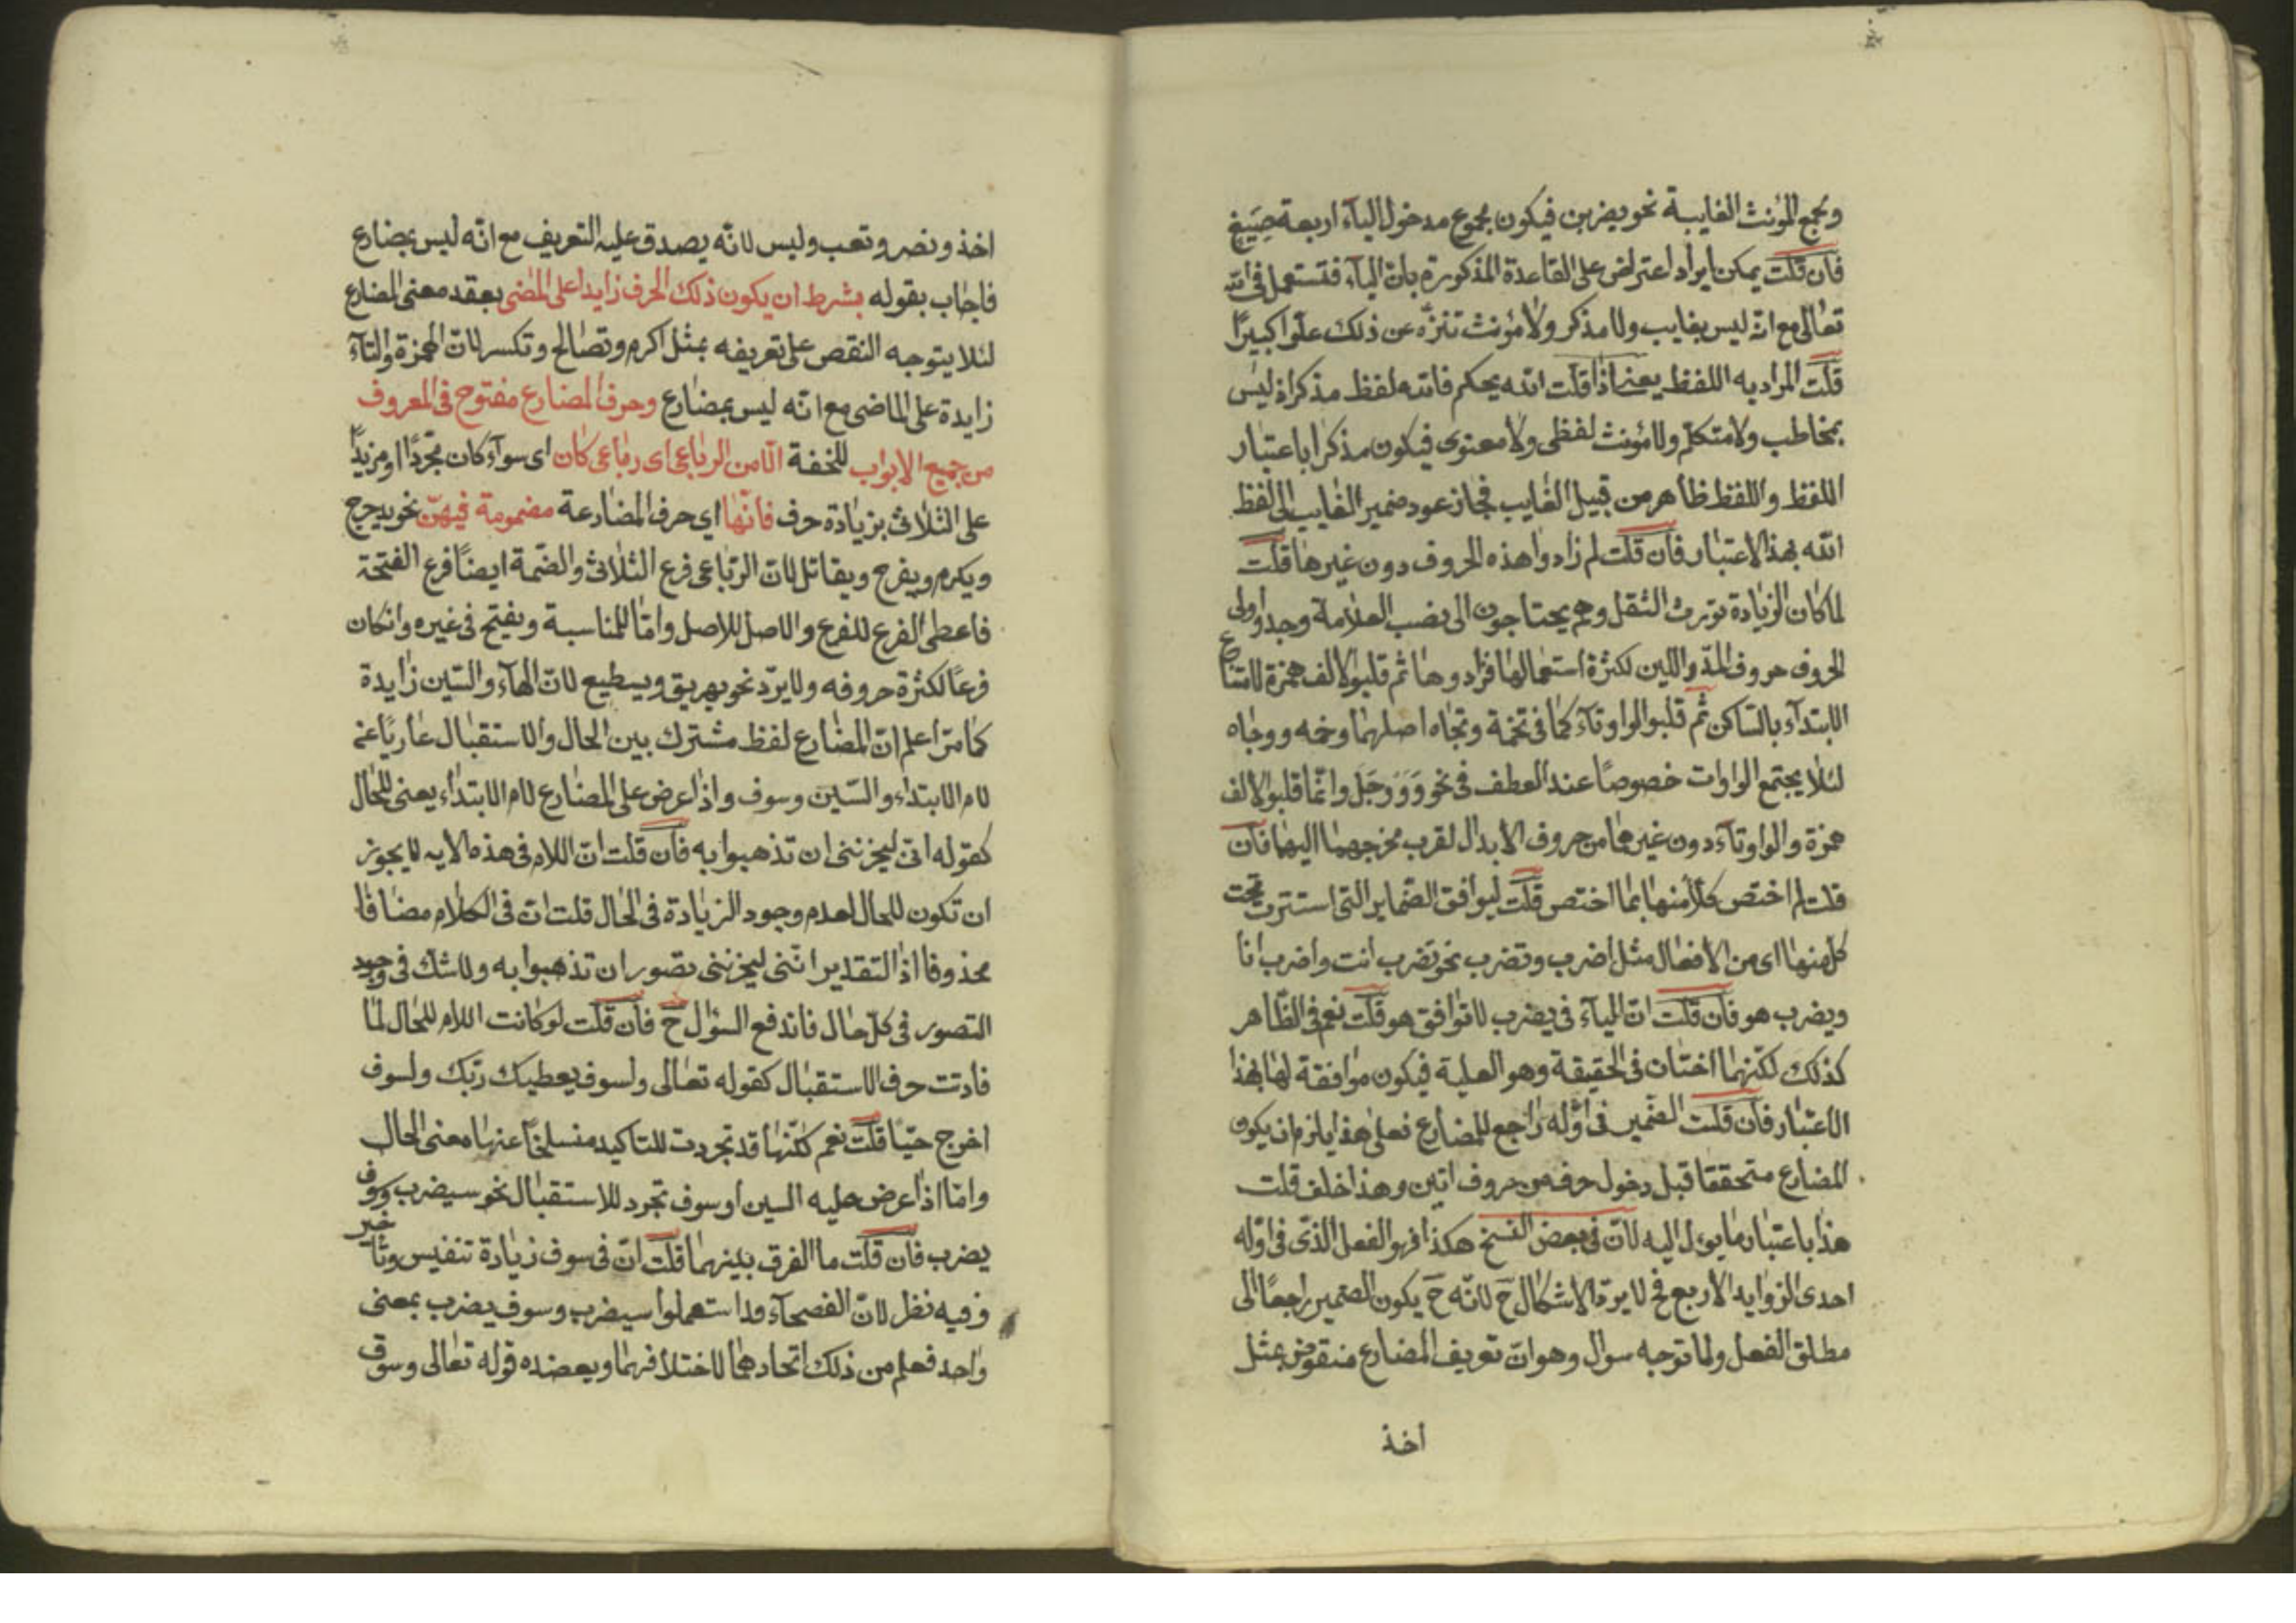 ولجمع المؤنث الغايبة نحو يضربن فيكون مجموع مدخول الياء اربعة صيغ
فان قلت يمكن ايراد اعتراض على القاعدة المذكورة بان الياء قد تستعمل فى الله
تعالى مع انه ليس بغايب ولا مذكر ولا مؤنث تنزّه عن ذلك علوّا كبيرًا
قلت المراد به اللفظ يعنى اذا قلت الله يحكم فالله لفظ مذكر اذ ليس
بمخاطب ولا متكلم ولا مؤنث لفظى ولا معنوى فيكون مذكرا باعتبار
اللفظ واللفظ ظاهر من قبيل الغايب فجاز عود ضمير الغايب الى لفظ
الله بهذا الاعتبار فان قلت لم زادوا هذه الحروف دون غيرها قلت
لما كان الزيادة تورث الثقل وهم يحتاجون الى نصب العلامة وجدوا اولى
الحروف حروف المدّ واللين لكثرة استعمالها فزادوها ثم قلبوا الالف همزة لامتناع
الابتداء بالساكن ثم قلبوا الواو تاء كما فى تخمة وتجاه اصلهما وخمه ووجاه
لئلا يجتمع الواوات خصوصًا عند العطف فى نحو وَوَوَجَلَ وانما قلبوا الالف
همزة والواو تاء دون غيرهما من حروف الابدال لقرب مخرجهما اليهما فان
قلت لم اختص كلا منها بما اختص قلت ليوافق الضماير التى استترت تحت
كل منها اى من الافعال مثل اضرب وتضرب نحو تضرب انت واضرب انا
ويضرب هو فان قلت ان الياء فى يضرب لا توافق هو قلت نعم فى الظاهر
كذلك لكنهما اختان فى الحقيقة وهو العلية فيكون موافقة لها بهذا
الاعتبار فان قلت الضمير فى اوّله راجع للمضارع فعلى هذا يلزم ان يكون
المضارع متحققا قبل دخول حرف من حروف اتين وهذا خلف قلت
هذا باعتبار ما يول اليه لان فى بعض النسخ هكذا فهو الفعل الذى فى اوّله
احدى الزوايد الاربع فح لا يرد الاشكال ح لانّه ح يكون الضمير راجعًا الى
مطلق الفعل ولما توجه سوال وهو ان تعريف المضارع منقوض بمثل
اخذ
اخذ ونصر وتعب وليس لانّه يصدق عليه التعريف مع انّه ليس بمضارع
فاجاب بقوله بشرط ان يكون ذلك الحرف زايدا على المضى بعقد معنى المضارع
لئلا يتوجه النقص على تعريفه بمثل اكرم وتصالح وتكسر لان الهمزة والتاء
زايدة على الماضى مع انّه ليس بمضارع وحرف المضارع مفتوح فى المعروف
من جميع الابواب للخفة الّا من الرباعى اى رباعى كان اى سواء كان مجرّدًا او مزيدًا
على الثلاثى بزيادة حرف فانّها اى حرف المضارعة مضمومة فيهنّ نحو يدحرج
ويكرم ويفرح ويقاتل لان الرباعى فرع الثلاثى والضمة ايضًا فرع الفتحة
فاعطى الفرع للفرع والاصل للاصل وامّا للمناسبة ويفتح فى غيره وان كان
فرعًا لكثرة حروفه ولا يرد نحو يهريق ويسطيع لان الهاء والسين زايدة
كما مرّ اعلم ان المضارع لفظ مشترك بين الحال والاستقبال عاريًا عن
لام الابتداء والسين وسوف واذا عرض على المضارع لام الابتداء يعنى للحال
كقوله انى ليحزننى ان تذهبوا به فان قلت ان اللام فى هذه الايه لا يجوز
ان تكون للحال لعدم وجود الزيادة فى الحال قلت ان فى الكلام مضافا
محذوفا اذ التقدير انّنى ليحزننى تصور ان تذهبوا به ولا شك فى وجود
التصور فى كل حال فاندفع السؤال ح فان قلت لو كانت اللام للحال لما
فادت حرف الاستقبال كقوله تعالى ولسوف يعطيك ربّك ولسوف
اخرج حيّا قلت نعم لكنّها قد تجردت للتاكيد منسلخًا عنها معنى الحال
وامّا اذا عرض عليه السين او سوف تجرد للاستقبال نحو سيضرب وسوف
يضرب فان قلت ما الفرق بينهما قلت ان فى سوف زيادة تنفيس وتاخير
وفيه نظر لان الفصحاء قد استعملوا سيضرب وسوف يضرب بمعنى
واحد فعلم من ذلك اتحادهما لا اختلافهما ويعضده قوله تعالى وسوف